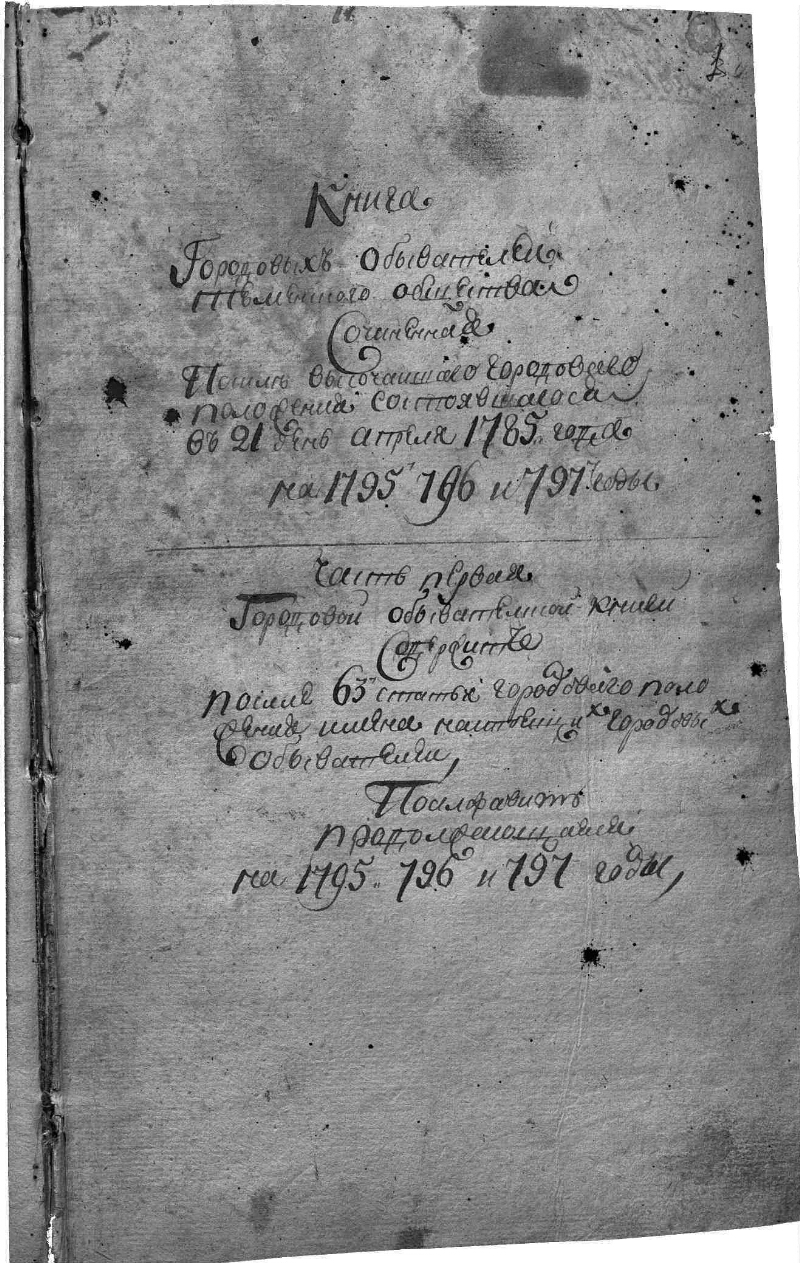 Книга
Городовыхъ обывателей
тюменского общества
Сочиненная
После высочаишаго городоваго
положения состоявшагося
въ 21 день апреля 1785. года
на 1795 796 и 797 годы
Часть первая
Городовой обывательской книги
Содержитъ
после 63 статьи городоваго поло
жения имена настоящихъ городовыхъ
обывателеи,
По алфавиту
продолжающаяся
на 1795. 796 и 797 годы,